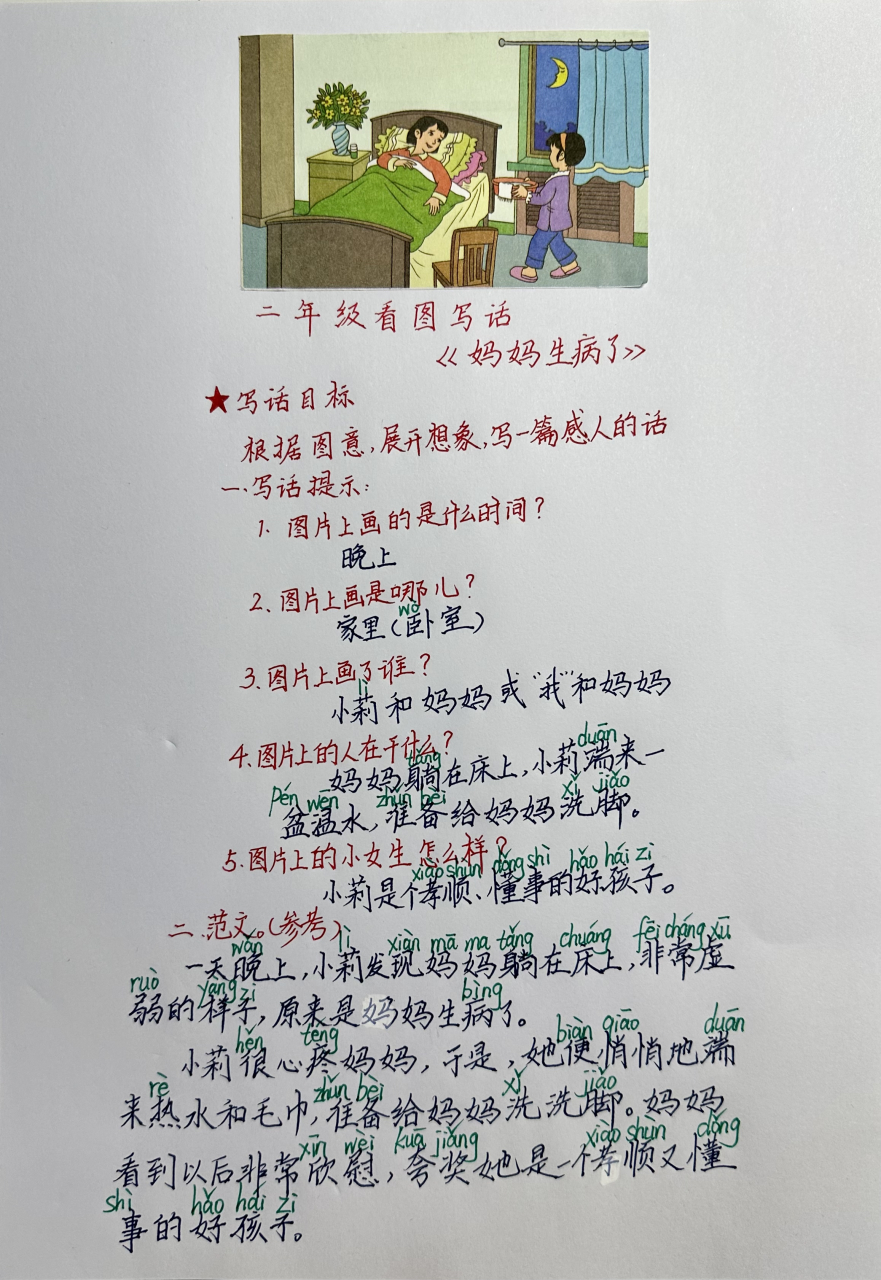 二年级看图写话
《妈妈生病了》
★写话目标
根据图意,展开想象,写一篇感人的话
一.写话提示:
1. 图片上画的是什么时间?
晚上
2、图片上画是哪儿?
wò
家里(卧室)
3、图片上画了谁?
lì
小莉和妈妈或“我”和妈妈
4、图片上的人在干什么?
tǎng duān
妈妈躺在床上,小莉端来一
pén wēn zhǔn bèi xǐ jiǎo
盆温水,准备给妈妈洗脚。
5、图片上的小女生怎么样?
xiào shùn dǒng shì hǎo hái zi
小莉是个孝顺、懂事的好孩子。
二、范文。(参考)
wǎn lì xiàn mā ma tǎng chuáng fēi cháng xū
一天晚上,小莉发现妈妈躺在床上,非常虚
ruò yàng zi bìng
弱的样子,原来是妈妈生病了。
hěn téng biàn qiāo duān
小莉很心疼妈妈,于是,她便悄悄地端
rè zhǔn bèi xǐ jiǎo
来热水和毛巾,准备给妈妈洗洗脚。妈妈
xīn wèi kuā jiǎng xiào shùn dǒng
看到以后非常欣慰,夸奖她是一个孝顺又懂
shì hǎo hái zi
事的好孩子。